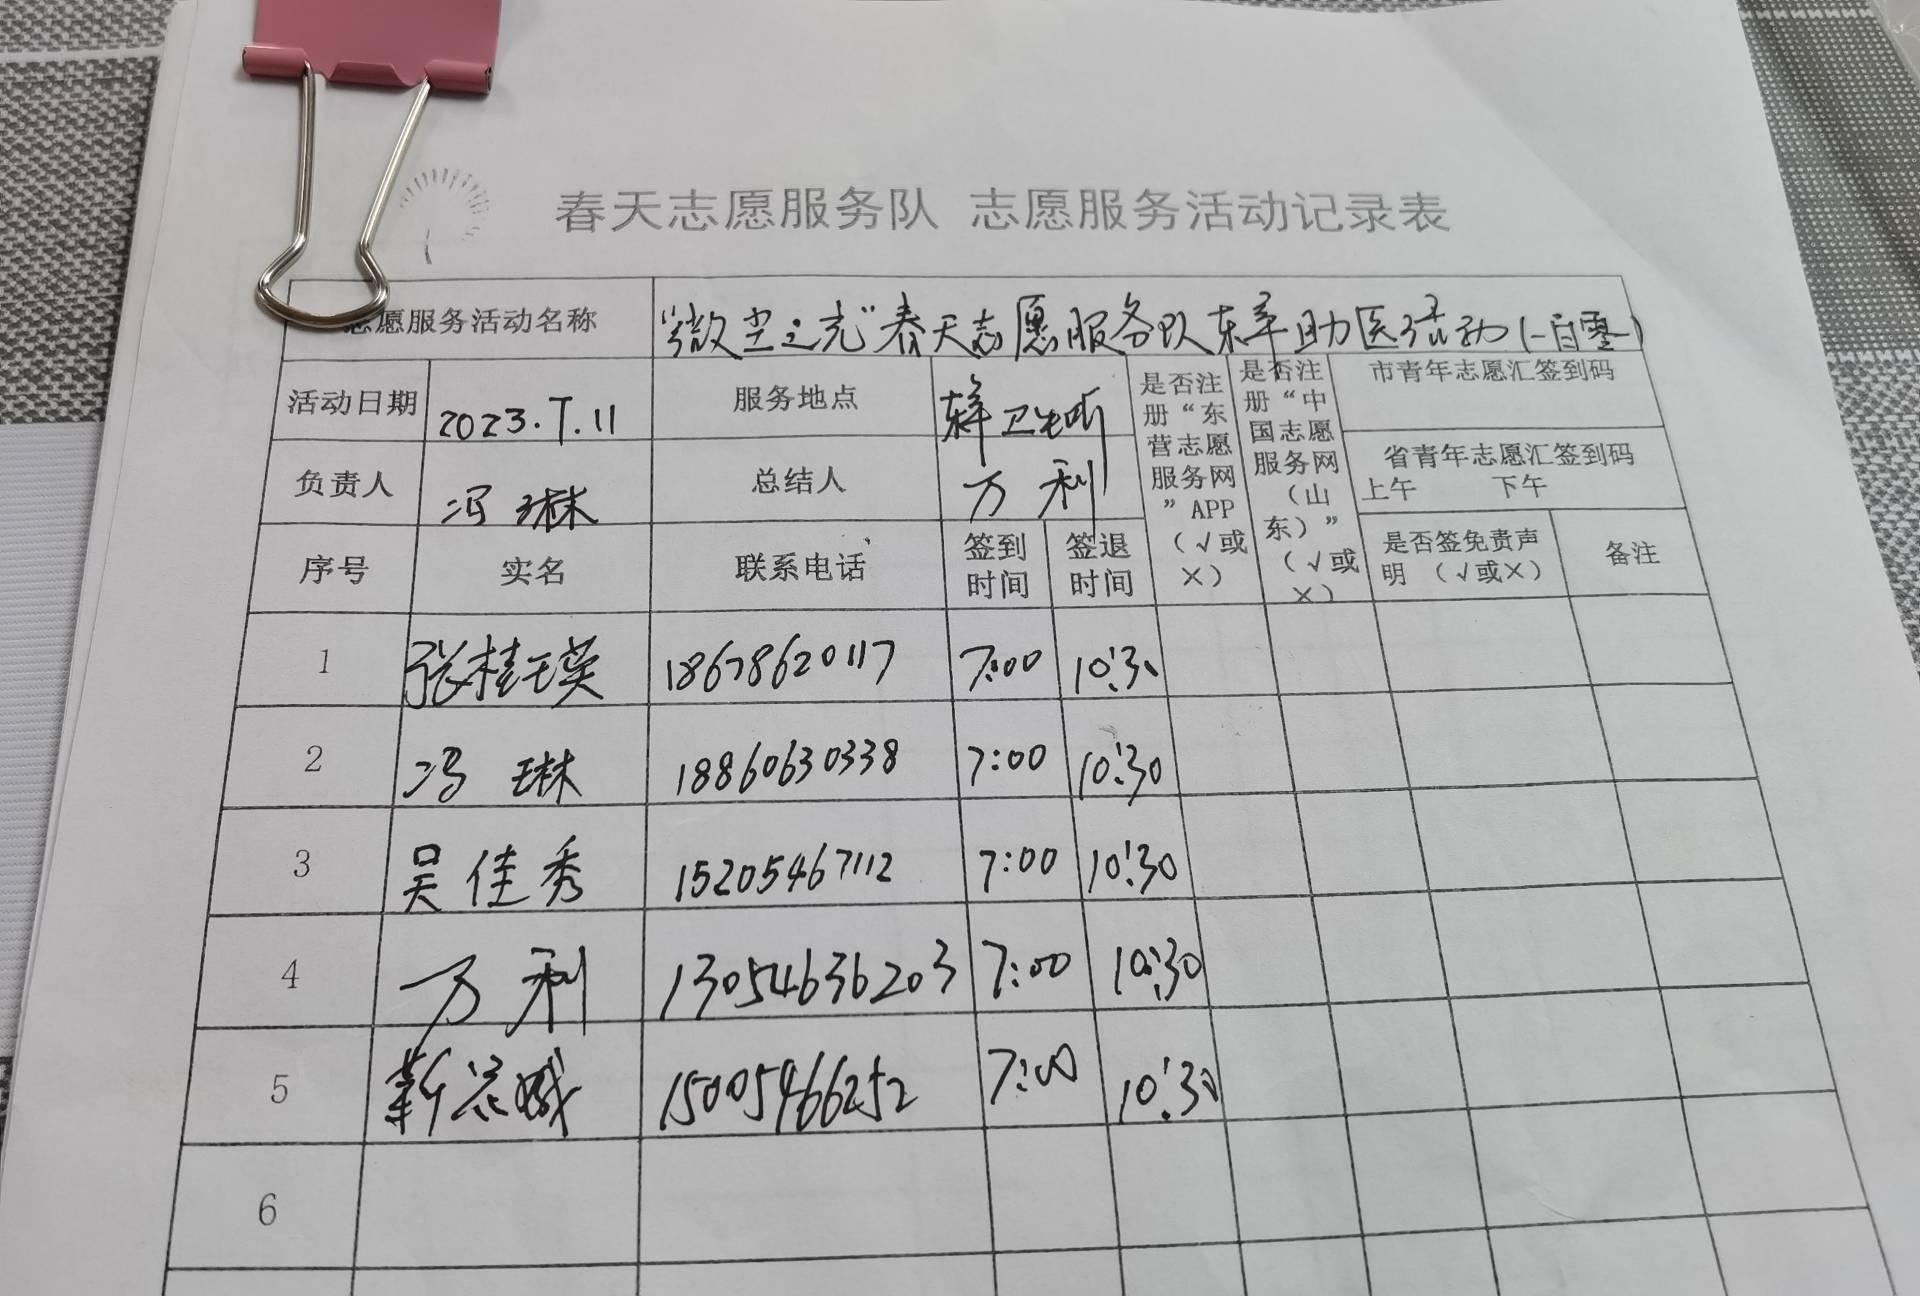 春天志愿服务队 志愿服务活动记录表
志愿服务活动名称 "微尘之光"春天志愿服务队东辛助医活动(一百零
活动日期 2023.7.11 服务地点 东辛卫生所
是否注册“东营志愿服务网”APP（√或×）
是否注册“中国志愿服务网（山东）”（√或×）
市青年志愿汇签到码
省青年志愿汇签到码
上午 下午
负责人 冯琳 总结人 万利
序号 实名 联系电话 签到时间 签退时间 是否签免责声明（√或×） 备注
1 张桂英 18678620117 7:00 10:30
2 冯琳 18860630338 7:00 10:30
3 吴佳秀 15205467112 7:00 10:30
4 万利 13054636203 7:00 10:30
5 15005466252 7:00 10:30
6